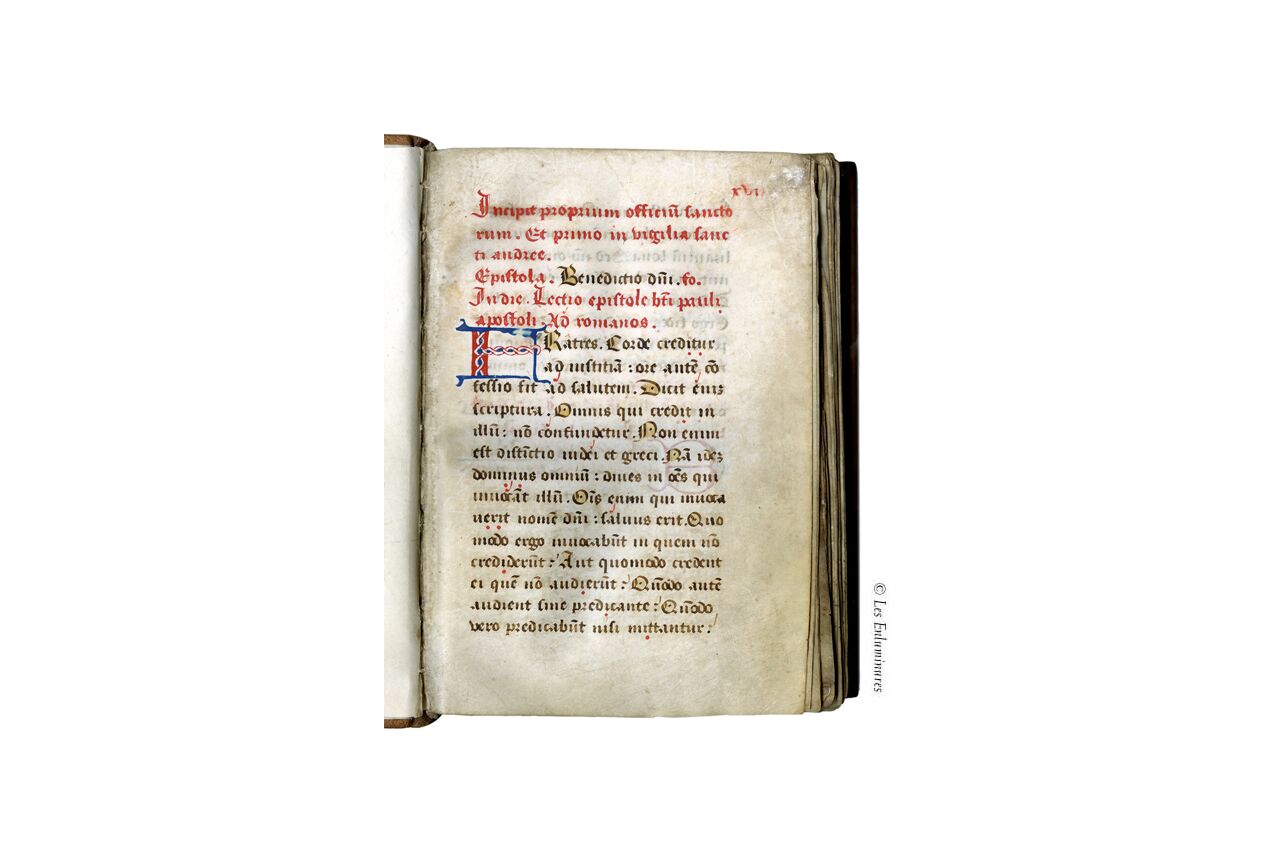 xvi
Incipit proprium officiū sancto
rum. Et primo in vigilia sanc
ti andree.
Epistola. Benedictio dn̄i. fo.
In die. Lectio epistole bt̄i pauli
apostoli. Ad romanos.
FRatres. Corde creditur
ad iustitiā: ore autē cō
fessio fit ad salutem. Dicit eniȝ
scriptura. Omnis qui credit in
illū: nō confundetur. Non enim
est distīctio iudei et greci. Nā ideȝ
dominus omniū: diues in oēs qui
inuocāt illū. Oīs enim qui inuoca
uerit nomē dn̄i: saluus erit. Quo
modo ergo inuocabūt in quem nō
crediderūt? Aut quomodo credent
ei quē nō audierūt? Quōodo autē
audient sine predicante? Quōodo
vero predicabūt nisi mittantur?
© Les Enluminures